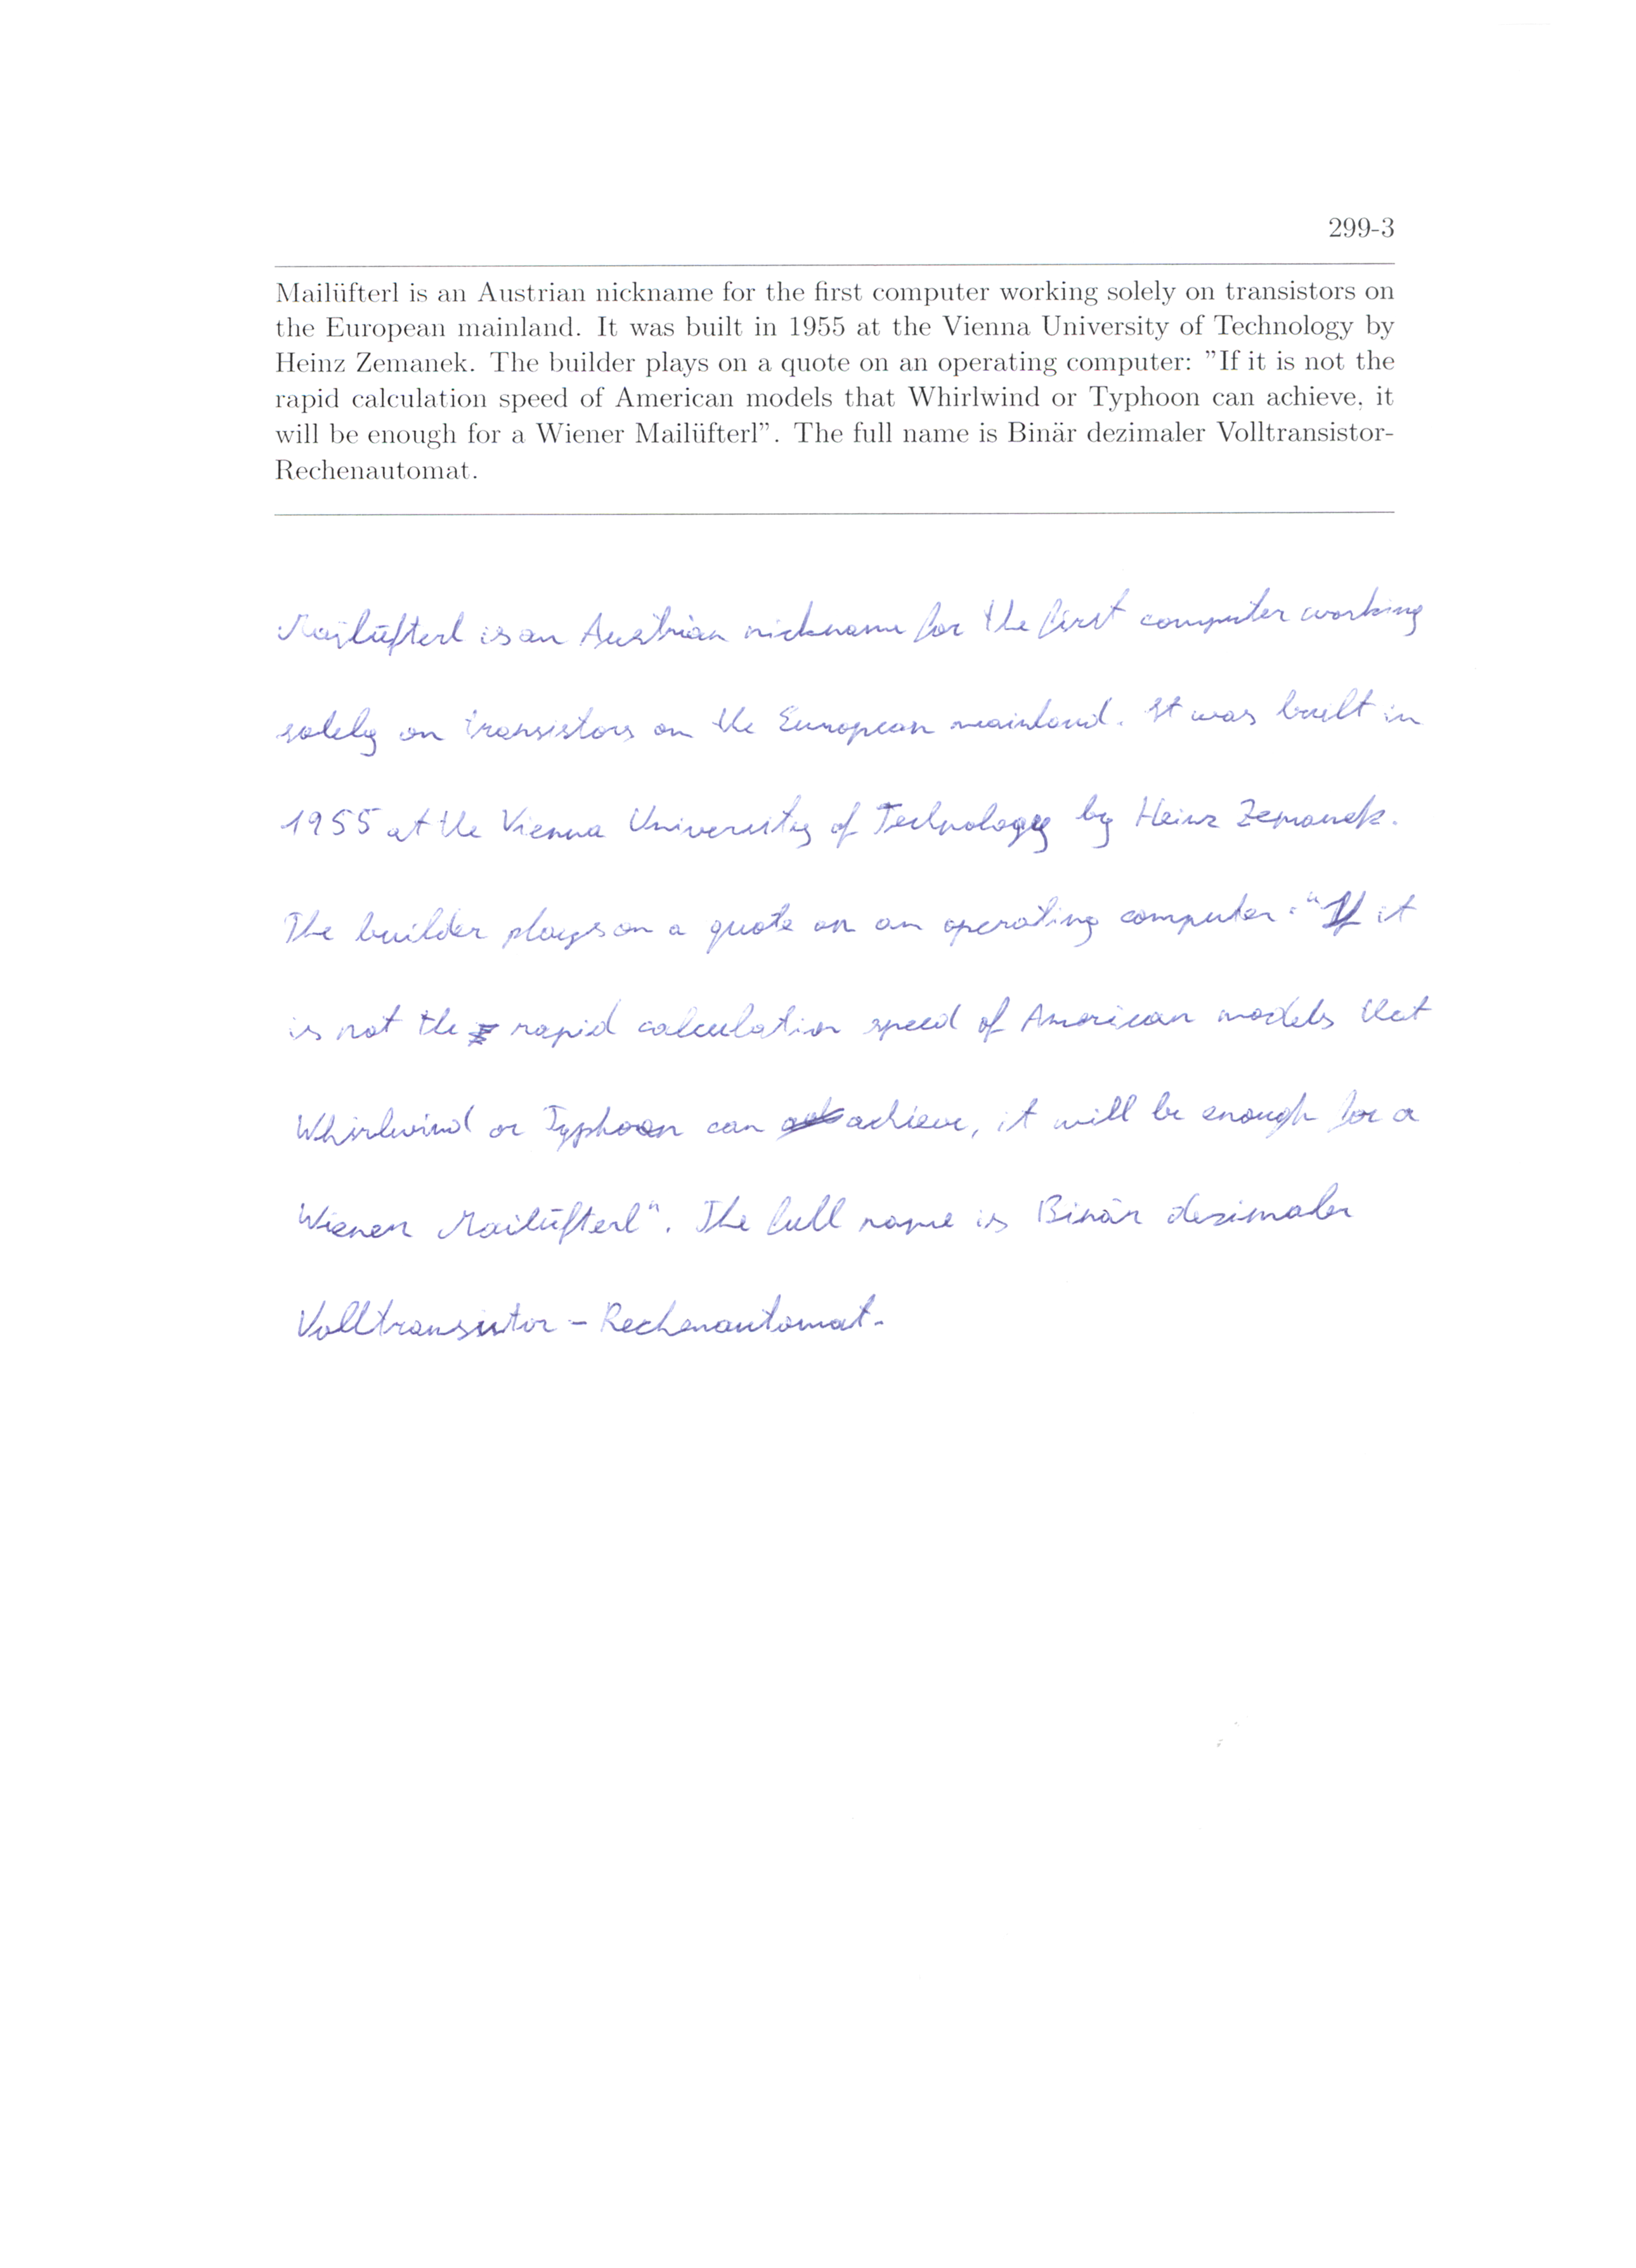 299-3
Mailüfterl is an Austrian nickname for the first computer working solely on transistors on
the European mainland. It was built in 1955 at the Vienna University of Technology by
Heinz Zemanek. The builder plays on a quote on an operating computer: ”If it is not the
rapid calculation speed of American models that Whirlwind or Typhoon can achieve, it
will be enough for a Wiener Mailüfterl”. The full name is Binär dezimaler Volltransistor-
Rechenautomat.
Mailüfterl is an Austrian nickname for the first computer working
solely on transistors on the European mainland. It was built in
1955 at the Vienna University of Technology by Heinz Zemanek.
The builder plays on a quote on an operating computer: "If it
is not the rapid calculation speed of American models that
Whirlwind or Typhoon can achieve, it will be enough for a
Wiener Mailüfterl". The full name is Binär dezimaler
Volltransistor - Rechenautomat.